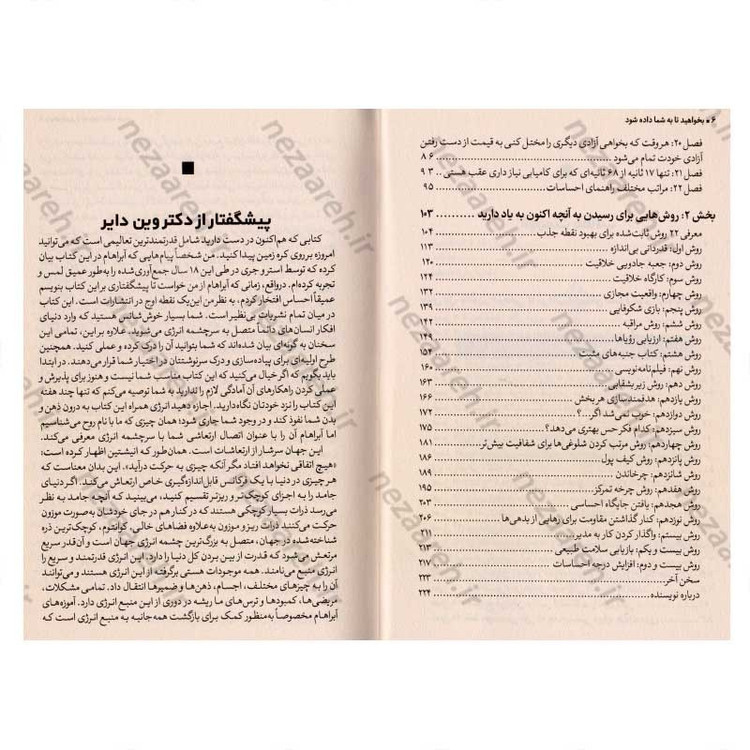 ۶ ▪ بخواهید تا به شما داده شود
فصل ۲۰: هر وقت که بخواهی آزادی دیگری را مختل کنی به قیمت از دست رفتن
آزادی خودت تمام می‌شود ... ۸۶
فصل ۲۱: تنها ۱۷ ثانیه از ۶۸ ثانیه‌ای که برای کامیابی نیاز داری عقب هستی .. ۹۳
فصل ۲۲: مراتب مختلف راهنمای احساسات ... ۹۵
بخش ۲: روش‌هایی برای رسیدن به آنچه اکنون به یاد دارید ... ۱۰۳
معرفی ۲۲ روش ثابت‌شده برای بهبود نقطه جذب ... ۱۰۴
روش اول: قدردانی بی‌اندازه ... ۱۱۴
روش دوم: جعبه جادویی خلاقیت ... ۱۲۰
روش سوم: کارگاه خلاقیت ... ۱۲۴
روش چهارم: واقعیت مجازی ... ۱۳۲
روش پنجم: بازی شکوفایی ... ۱۳۹
روش ششم: روش مراقبه ... ۱۴۲
روش هفتم: ارزیابی رؤیاها ... ۱۴۹
روش هشتم: کتاب جنبه‌های مثبت ... ۱۵۴
روش نهم: فیلم‌نامه‌نویسی ... ۱۶۰
روش دهم: روش زیربشقابی ... ۱۶۳
روش یازدهم: هدفمندسازی هر بخش ... ۱۶۶
روش دوازدهم: خوب نمی‌شد اگر...؟ ... ۱۷۲
روش سیزدهم: کدام فکر حس بهتری می‌دهد؟ ... ۱۷۵
روش چهاردهم: روش مرتب کردن شلوغی‌ها برای شفافیت بیش‌تر ... ۱۸۱
روش پانزدهم: روش کیف پول ... ۱۸۶
روش شانزدهم: چرخاندن ... ۱۸۹
روش هفدهم: روش چرخه تمرکز ... ۱۹۵
روش هجدهم: یافتن جایگاه احساسی ... ۲۰۳
روش نوزدهم: کنار گذاشتن مقاومت برای رهایی از بدهی‌ها ... ۲۰۶
روش بیستم: واگذار کردن کار به مدیر ... ۲۱۱
روش بیست و یکم: بازیابی سلامت طبیعی ... ۲۱۳
روش بیست و دوم: افزایش درجه احساسات ... ۲۱۷
سخن آخر ... ۲۲۳
درباره نویسنده ... ۲۲۴
پیشگفتار از دکتر وین دایر
کتابی که هم‌اکنون در دست دارید شامل قدرتمندترین تعالیمی است که می‌توانید
امروزه بر روی کره زمین پیدا کنید. من شخصاً پیام‌هایی که آبراهام در این کتاب بیان
کرده که توسط استر و جری در طی این ۱۸ سال جمع‌آوری‌شده را به‌طور عمیق لمس و
تجربه کرده‌ام. درواقع، زمانی که آبراهام از من خواست تا پیشگفتاری بر این کتاب بنویسم
عمیقاً احساس افتخار کردم. به نظر من این یک نقطه اوج در انتشارات است. این کتاب
در میان تمام نشریات بی‌نظیر است. شما بسیار خوش‌شانس هستید که وارد دنیای
افکار انسان‌های دائماً متصل به سرچشمه انرژی می‌شوید. علاوه بر این، تمامی این
سخنان به گونه‌ای بیان شده‌اند که شما بتوانید آن را درک کرده و عملی کنید. همچنین
طرح اولیه‌ای برای پیاده‌سازی و درک سرنوشتتان در اختیار شما قرار می‌دهند. در ابتدا
باید بگویم که اگر خیال می‌کنید که این کتاب مناسب شما نیست و هنوز برای پذیرش و
عملی کردن راهکارهای آن آمادگی لازم را ندارید به شما توصیه می‌کنم که تنها چند هفته
این کتاب را نزد خودتان نگاه دارید. اجازه دهید انرژی همراه این کتاب به درون ذهن و
بدن شما نفوذ کند و در وجود شما جاری شود؛ همان چیزی که ما با نام روح می‌شناسیم
اما آبراهام آن را با عنوان اتصال ارتعاشی شما با سرچشمه انرژی معرفی می‌کند.
این جهان سرشار از ارتعاشات است. همان‌طور که انیشتین اظهار کرده است:
«هیچ اتفاقی نخواهد افتاد مگر آنکه چیزی به حرکت درآید». این بدان معناست که
هر چیزی در دنیا با یک فرکانس قابل اندازه‌گیری خاص ارتعاش می‌کند. اگر دنیای
جامد را به اجزای کوچک‌تر و ریزتر تقسیم کنید، می‌بینید که آنچه جامد به نظر
می‌رسد ذرات بسیار کوچکی هستند که در کنار هم در جای خودشان به‌صورت موزون
حرکت می‌کنند ذرات ریز و موزون به‌علاوه فضاهای خالی. کوانتوم، کوچک‌ترین ذره
شناخته‌شده در جهان، متصل به بزرگ‌ترین چیزی جهان انرژی است و آن‌قدر سریع
مرتعش می‌شود که قدرت از بین بردن کل دنیا را دارد. این انرژی قدرتمند و سریع را
منبع انرژی می‌نامیم. همه موجودات هستی برگرفته از این انرژی هستند و می‌توانند
آن را به چیزهای مختلف، اجسام، ذهن‌ها و ضمیرها انتقال داد. تمامی مشکلات،
مریضی‌ها، کمبودها و ترس‌های ما ریشه در دوری از این منبع انرژی دارد. آموزه‌های
آبراهام مخصوصاً به‌منظور کمک برای بازگشت همه‌جانبه به منبع انرژی است که
nezaareh.ir